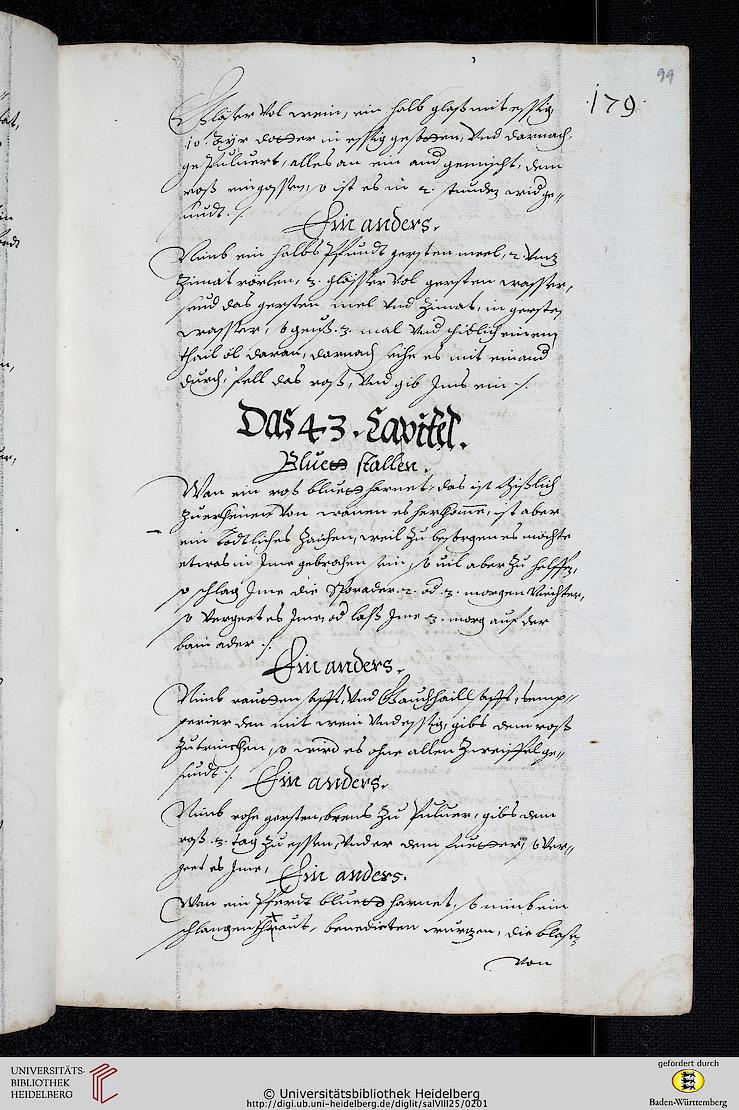 99
179
Gläser vol wein, ein halb glaß mit essig,
10. Ayr dotter in essig gesotten, Vnd darnach
ge Puluert, alles an ein and gemischt, dem
roß eingossen, so ist es in 2. stunden wid ge=
sundt ./.
Ein anders.
Nimb ein halbs Pfundt gersten meel, 2 Vntz
Zimat rörlen, 3. glässer vol gersten wasser,
seud das gersten mel vnd Zimat, in gersten
wasser, 3. mal Vnd einem
thail öl daran, darnach seihe es mit einand
durch, fell das roß, Vnd gib Ims ein ./.
Das 43. Capitel.
Bluett stallen.
Wan ein roß bluett harnet, das ist
Zuerkhenen, Von wanen es herkhomme, ist aber
ein tödtliches Zaichen, weil Zu besorgen es möchte
etwas in Ime gebrochen sein, so uil aber Zu helffen,
so schlag Ime die Sporader 2. od 3. morgen
so Vergeet es Ime, od laß Ime 3. morg auf der
bain ader ./.
Ein anders.
Nimb rautten safft, Vnd Gauchhaill safft, temp=
perier den mit wein Vnd essig, gibs dem roß
Zu trinckhen, so wird es ohne allen Zweiffel ge=
sundt ./.
Ein anders.
Nimb rohe gersten, brens Zu Puluer, gibs dem
roß 3. tag Zu essen, Vnder dem fuetter, so Ver=
geet es Ime,
Ein anders.
Wan ein Pferdt bluett harnet, so nimb ein
schlangen khraut, benedicten wurtzen, die blasen
von
UNIVERSITÄTS-
BIBLIOTHEK
HEIDELBERG
© Universitätsbibliothek Heidelberg
http://digi.ub.uni-heidelberg.de/diglit/salVIII25/0201
gefördert durch
Baden-Württemberg